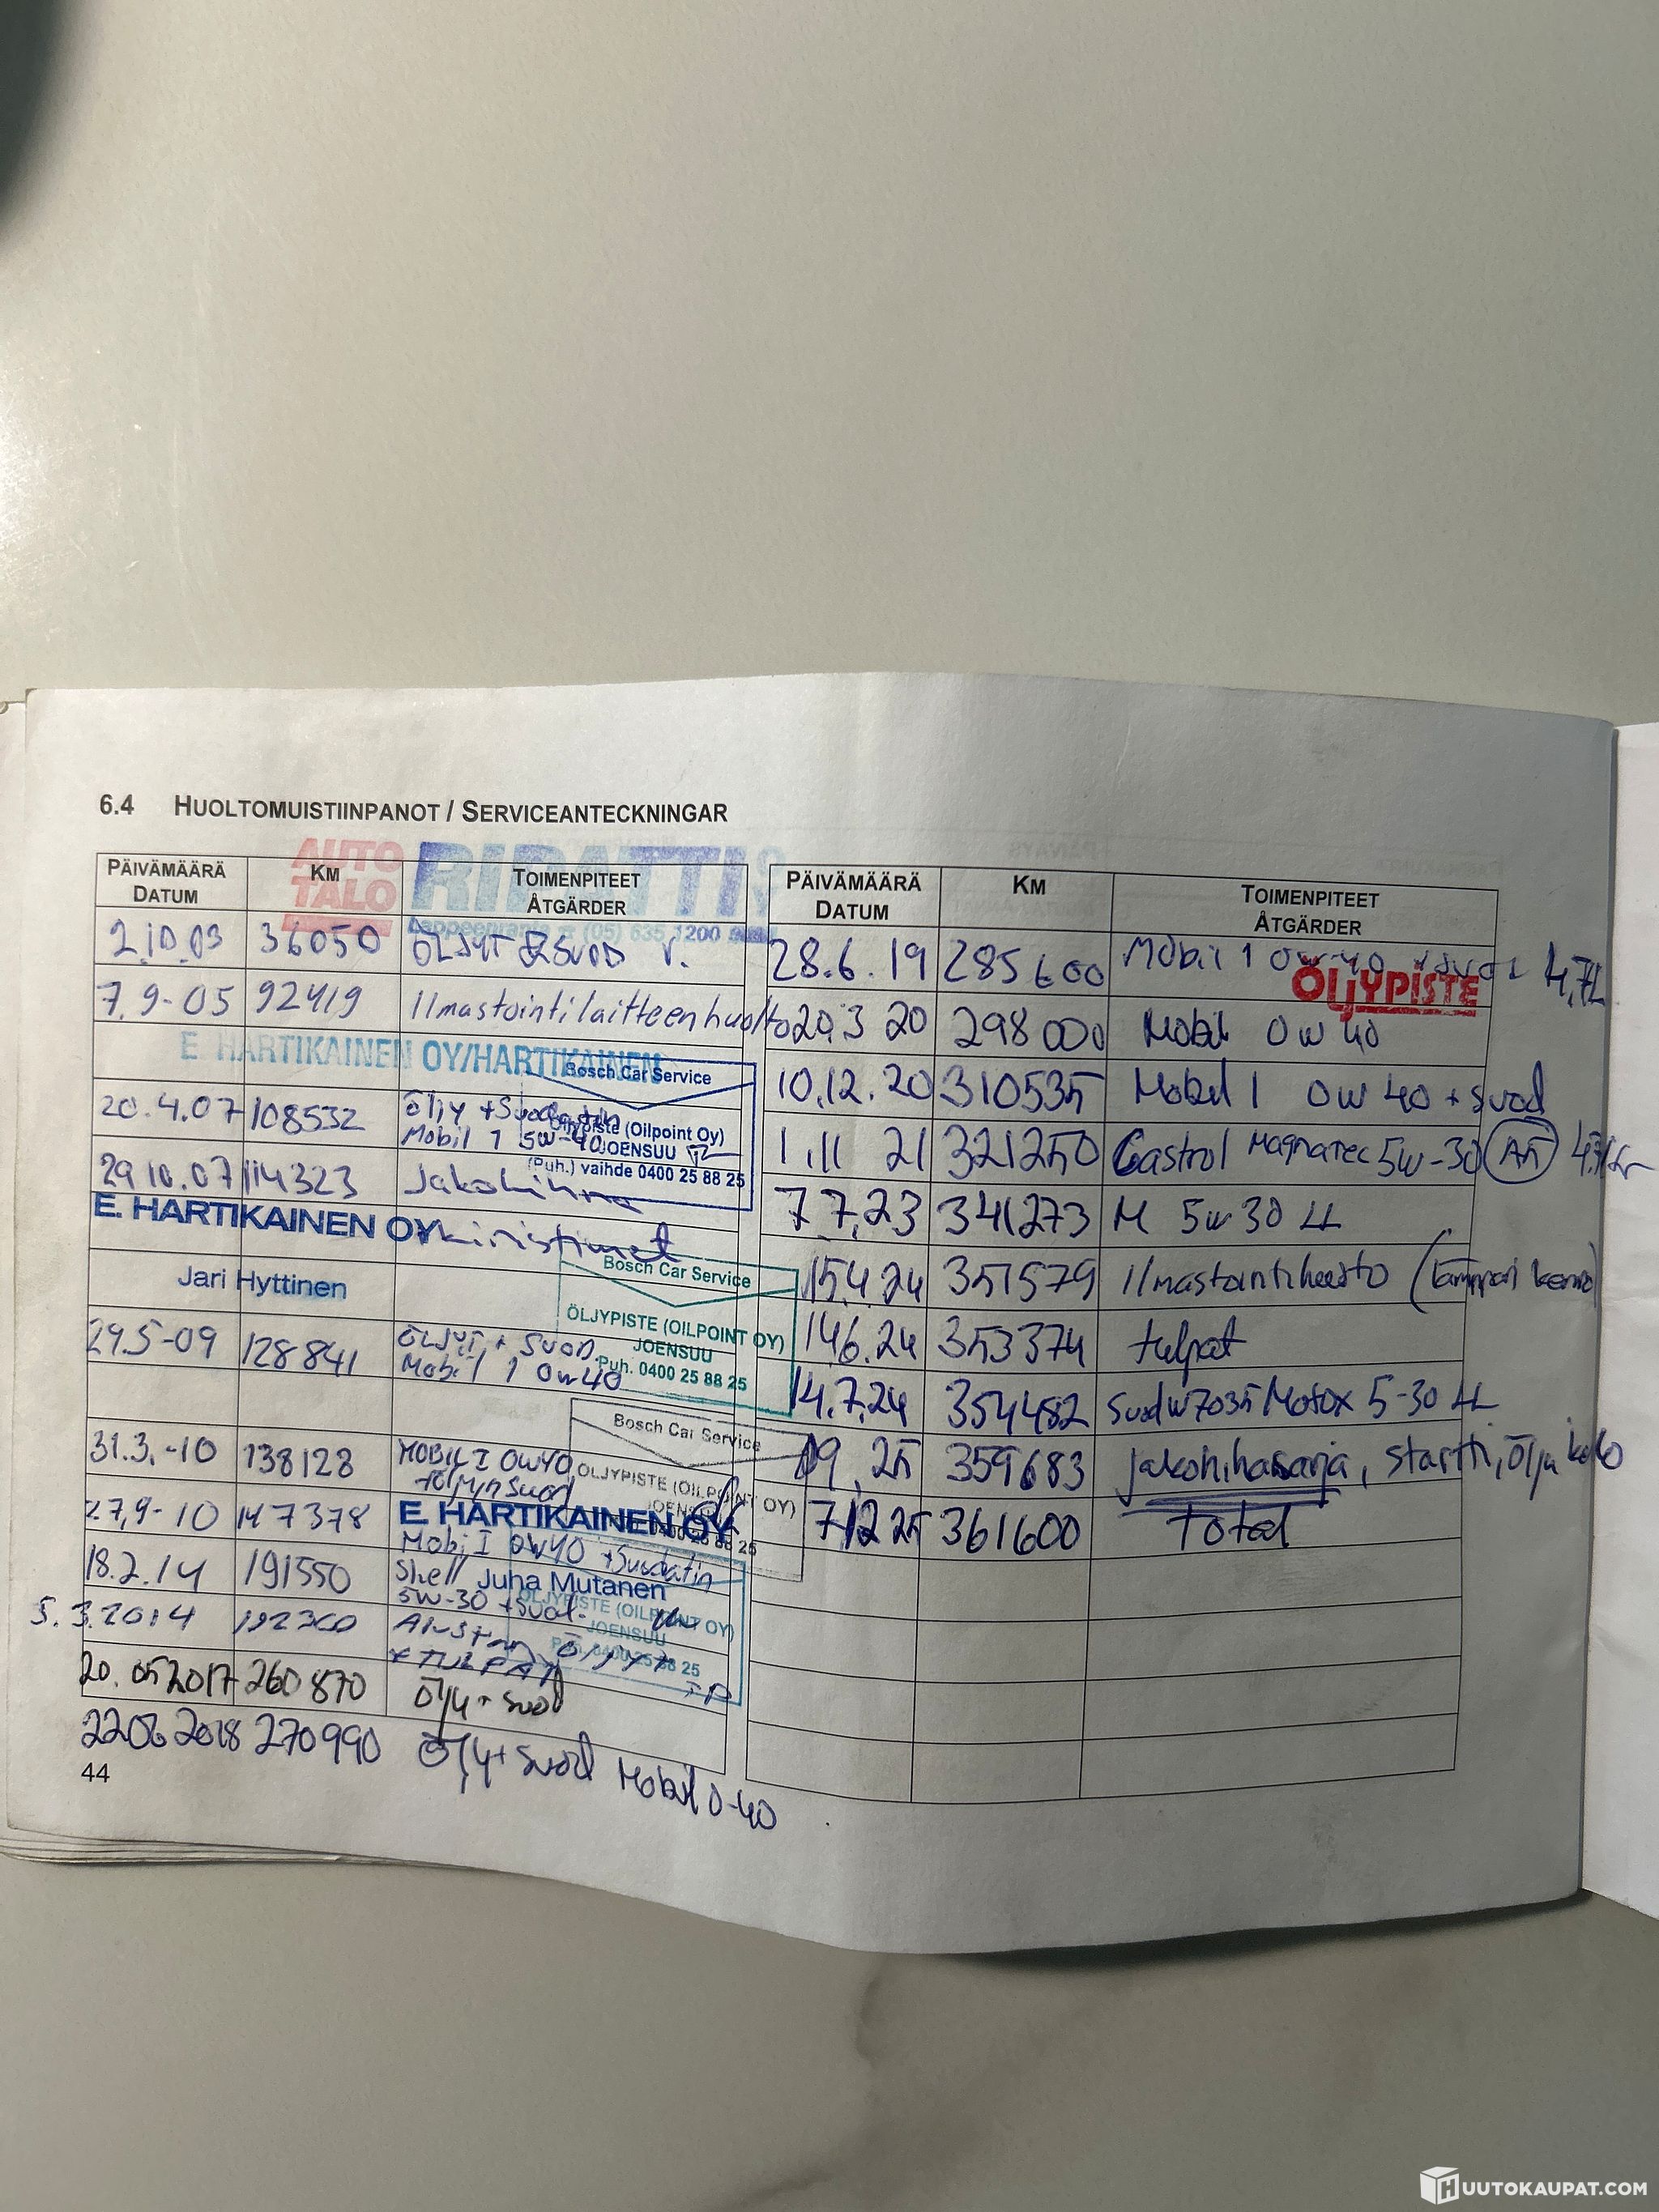 6.4 HUOLTOMUISTIINPANOT / SERVICEANTECKNINGAR
AUTO TALO RIPATTI
Lappeenranta (05) 635 1200
PÄIVÄMÄÄRÄ DATUM KM TOIMENPITEET ÅTGÄRDER
2.10.03 36050 ÖLJYT & SUOD V.
7.9-05 92419 Ilmastointilaitteen huolto
E HARTIKAINEN OY/HARTIKAINEN
Bosch Car Service
20.4.07 108532 Öljy + Suodatin
Mobil 1 5W-40
Öljypiste (Oilpoint Oy)
JOENSUU
(Puh.) vaihde 0400 25 88 25
29.10.07 114323 Jakohihna
E. HARTIKAINEN OY kiristimet
Jari Hyttinen
Bosch Car Service
ÖLJYPISTE (OILPOINT OY)
JOENSUU
Puh. 0400 25 88 25
29.5-09 128841 ÖLJYT + SUOD.
Mobil 1 0W40
Bosch Car Service
ÖLJYPISTE (OILPOINT OY)
JOENSUU
0400 25 88 25
31.3.-10 138128 MOBIL 1 0W40
+ölj yn suod
27,9-10 147378 E. HARTIKAINEN OY
Mobil 0W40 + Suodatin
18.2.14 191550 Shell Juha Mutanen
5W-30 + Suod.
ÖLJYPISTE (OILPOINT OY)
JOENSUU
5.3.2014 192300
+ TULPAT
20.05 2017 260870 Öljy + suod
22 06 2018 270990 Öljy + suod Mobil 0-40
44
PÄIVÄMÄÄRÄ DATUM KM TOIMENPITEET ÅTGÄRDER
28.6.19 285600 Mobil 1 0w-40 4,7L
ÖLJYPISTE
20.3 20 298000 Mobil 0w40
10.12.20 310535 Mobil 1 0w40 + suod
1.11 21 321250 Castrol Magnatec 5W-30 A5
7 7.23 341273 M 5w30 LL
15.4.24 351579 Ilmastointihuolto
14.6.24 353374 tulpat
14.7.24 354482 Suod W7035 Motox 5-30 LL
9.25 359683 jakohihnasarja, startti,
7.12 25 361600 Total
HUUTOKAUPAT.COM